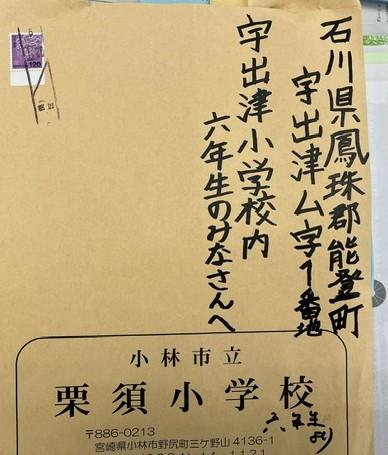 石川県鳳珠郡能登町
宇出津ム字1番地
宇出津小学校内
六年生のみなさんへ
120
小林市立
栗須小学校
六年生より
〒886-0213
宮崎県小林市野尻町三ケ野山4136-1